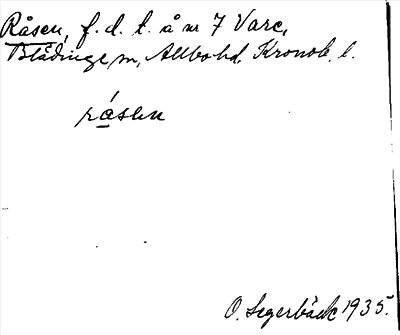 Råsen, f. d. t. å nr 7 Vare,
Blädinge sn, Allbo hd, Kronob. l.
råsen
O. Segerbäck 1935.